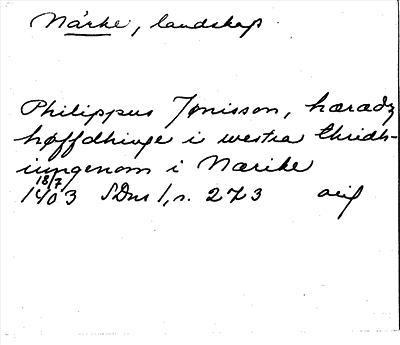 Närke, landskap
Philippus Jonisson, haradz
høffdhinge i westra thridh-
iungenom i Nærike
18/7
1403 SDns 1, s. 273 orig